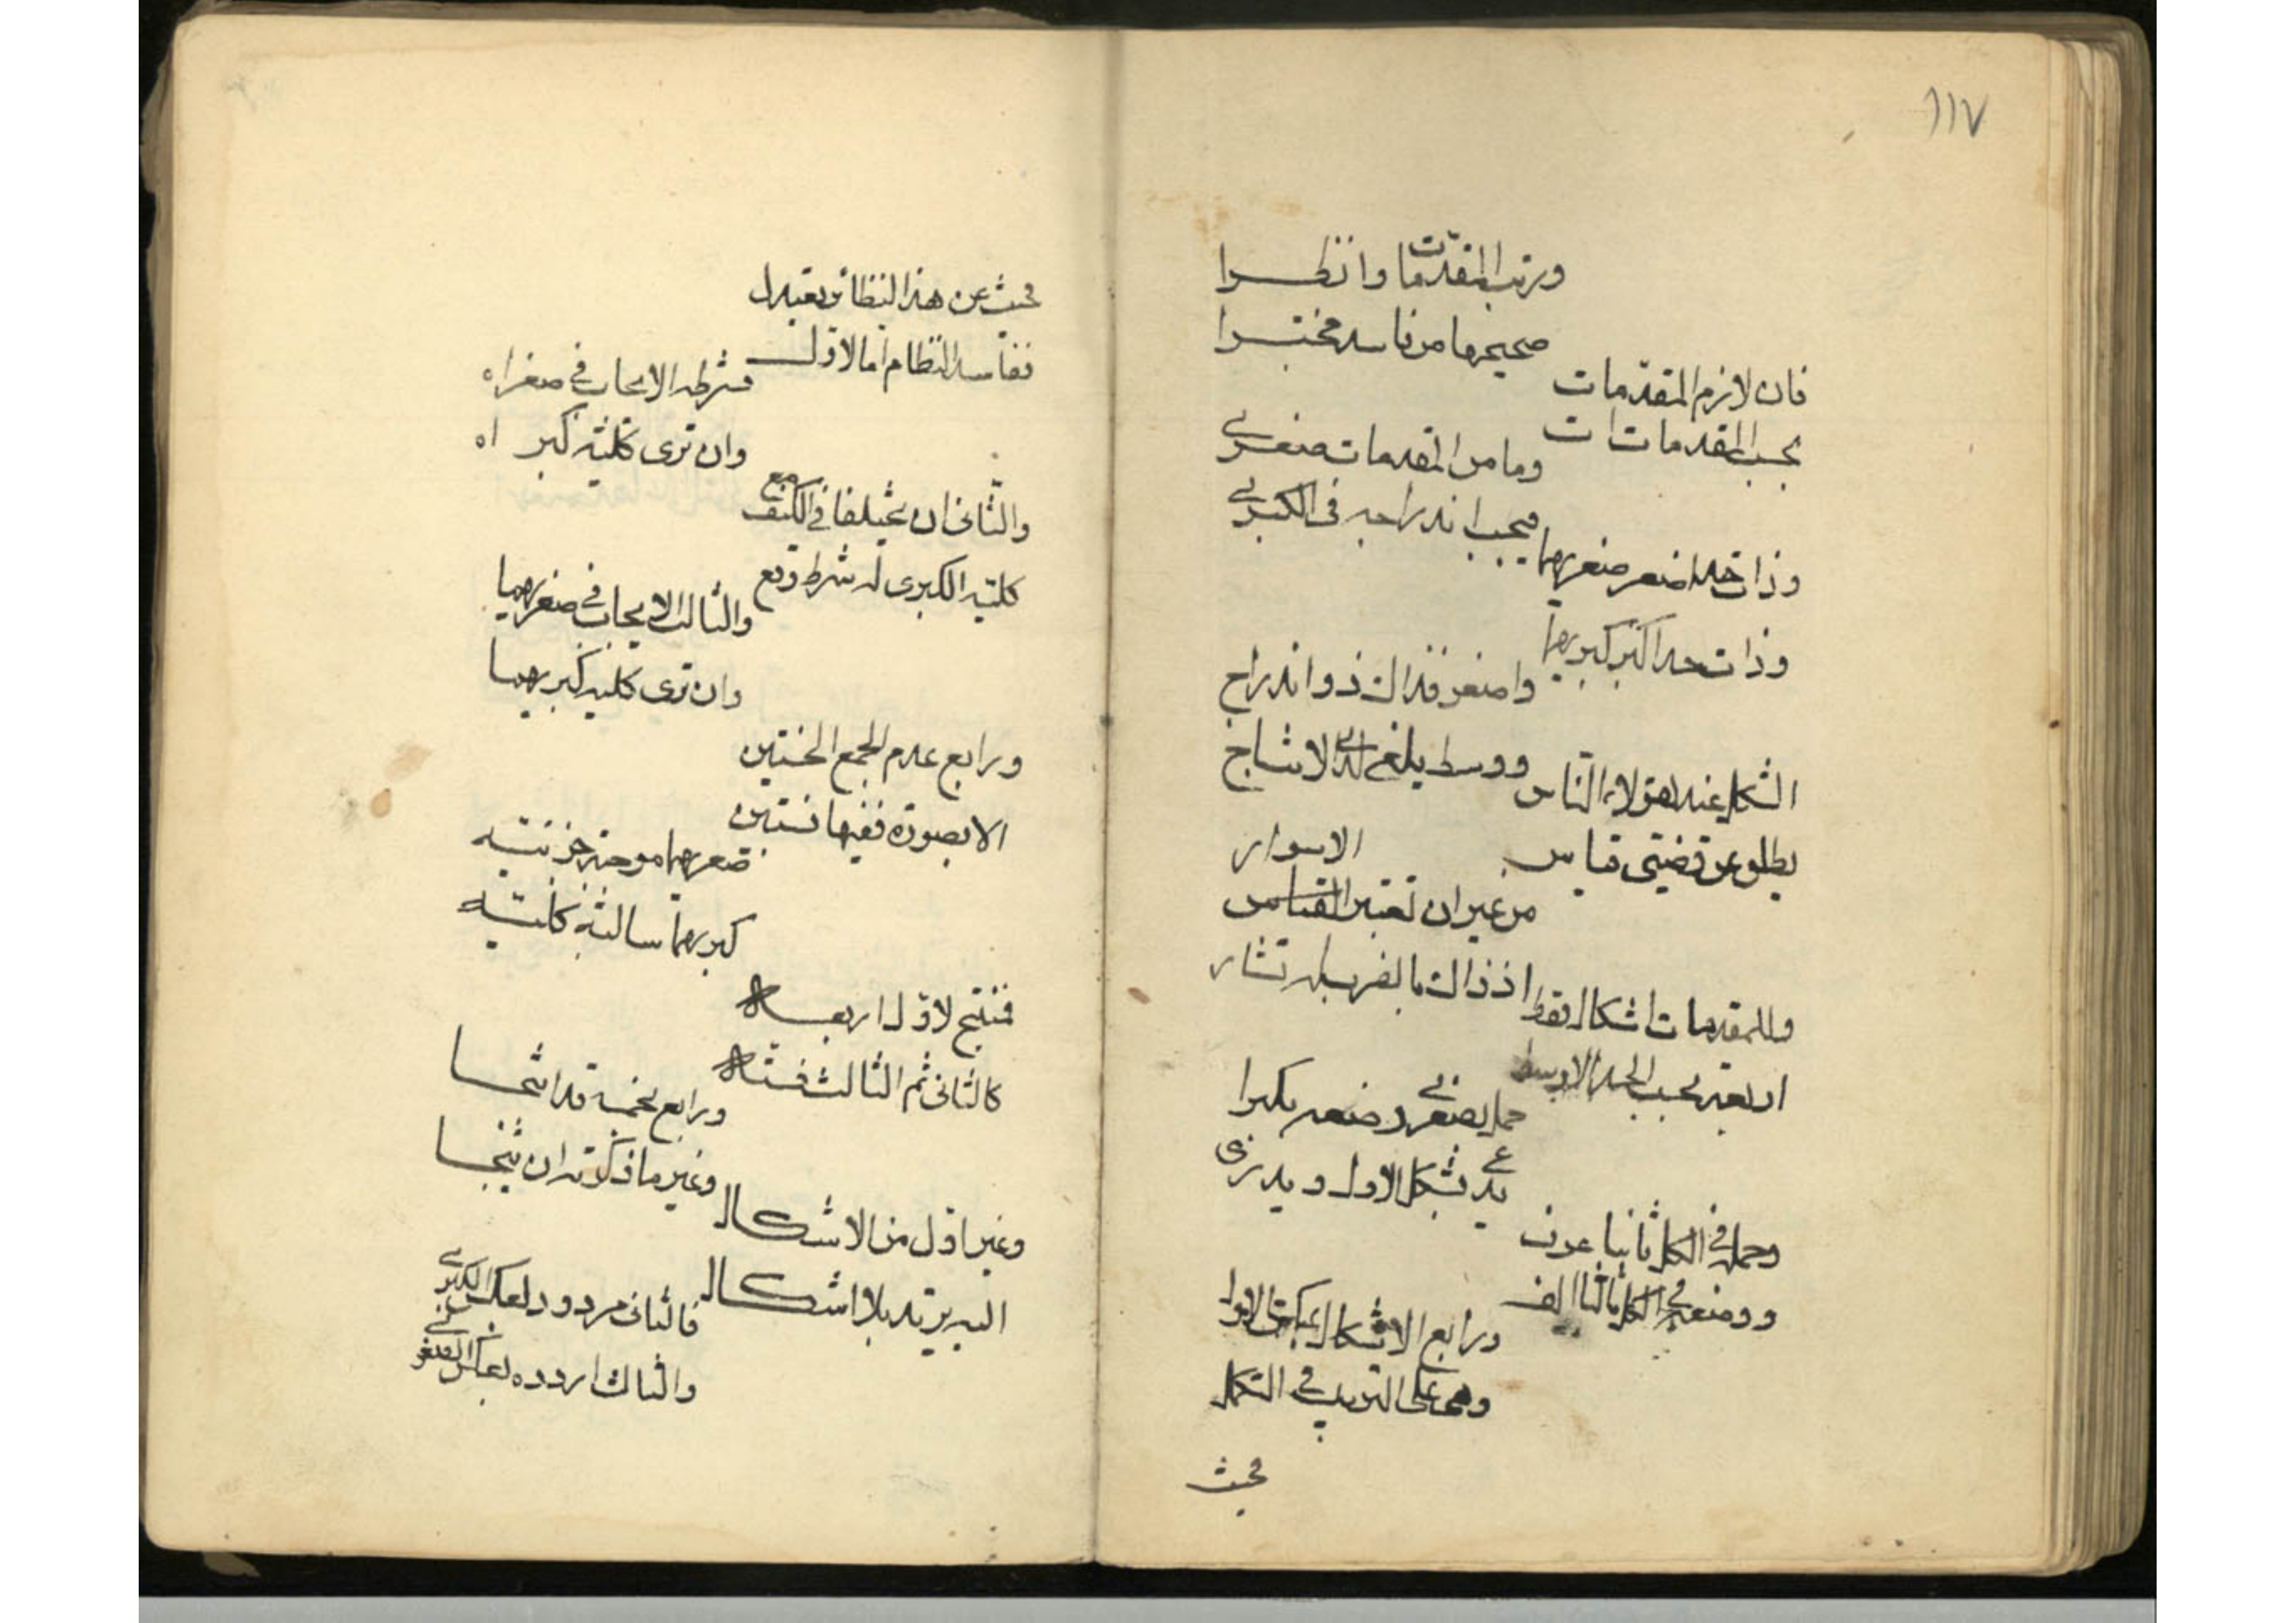 ١١٧
ورتب المقدمات وانظــرا
صحيحها من فاسد مختبــرا
فان لازم المقدمات
بحسب المقدمات ات
وما من المقدمات صغــرى
فيجب اندراجه في الكبــرى
وذات حد اصغر صغريهما
وذات حد اكبر كبريهما
واصغر فذاك ذو اندراج
ووسط يلغى لدى الانتــاج
الشكل عند هؤلاء الناس
يطلق عن قضيتي قيـاس
من غير ان تعتبر القياس الاسوار
اذ ذاك بالضرب له تشار
وللمقدمات اشكال فقط
اربعة بحسب الحد الاوسط
حمل بصغرى وضعه بكبرا
يدعى بشكل الاول ويدرى
وحمله في الكل ثانيا عرف
ووضعه في الكل ثالثا الف
ورابع الاشكال عكس الاول
وهي على الترتيب في التكمل
فحيث
فحيث عن هذا النظام يعدل
ففاسد النظام اما الاول
فشرطه الايجاب في صغراه
وان ترى كلية كبر اه
والثاني ان يختلفا في الكيف مع
كلية الكبرى له شرط وقع
والثالث الايجاب في صغريهمـا
وان ترى كلية كبريهمـا
ورابع عدم الجمع الخستين
الا بصورة ففيها تستبين
صغريهما موجبة جزئيتــه
كبريهما سالبة كليتــه
فمنتج لاول اربعــة
كالثاني ثم الثالث فستــة
ورابع بخمسة قد انتجــا
وغير ما ذكرته لن ينتجــا
وغير اول من الاشكــال
اليه يرتد بلا اشكــال
فالثاني مردود بعكس الكبرى
والثالث اردده بعكس الصغرى